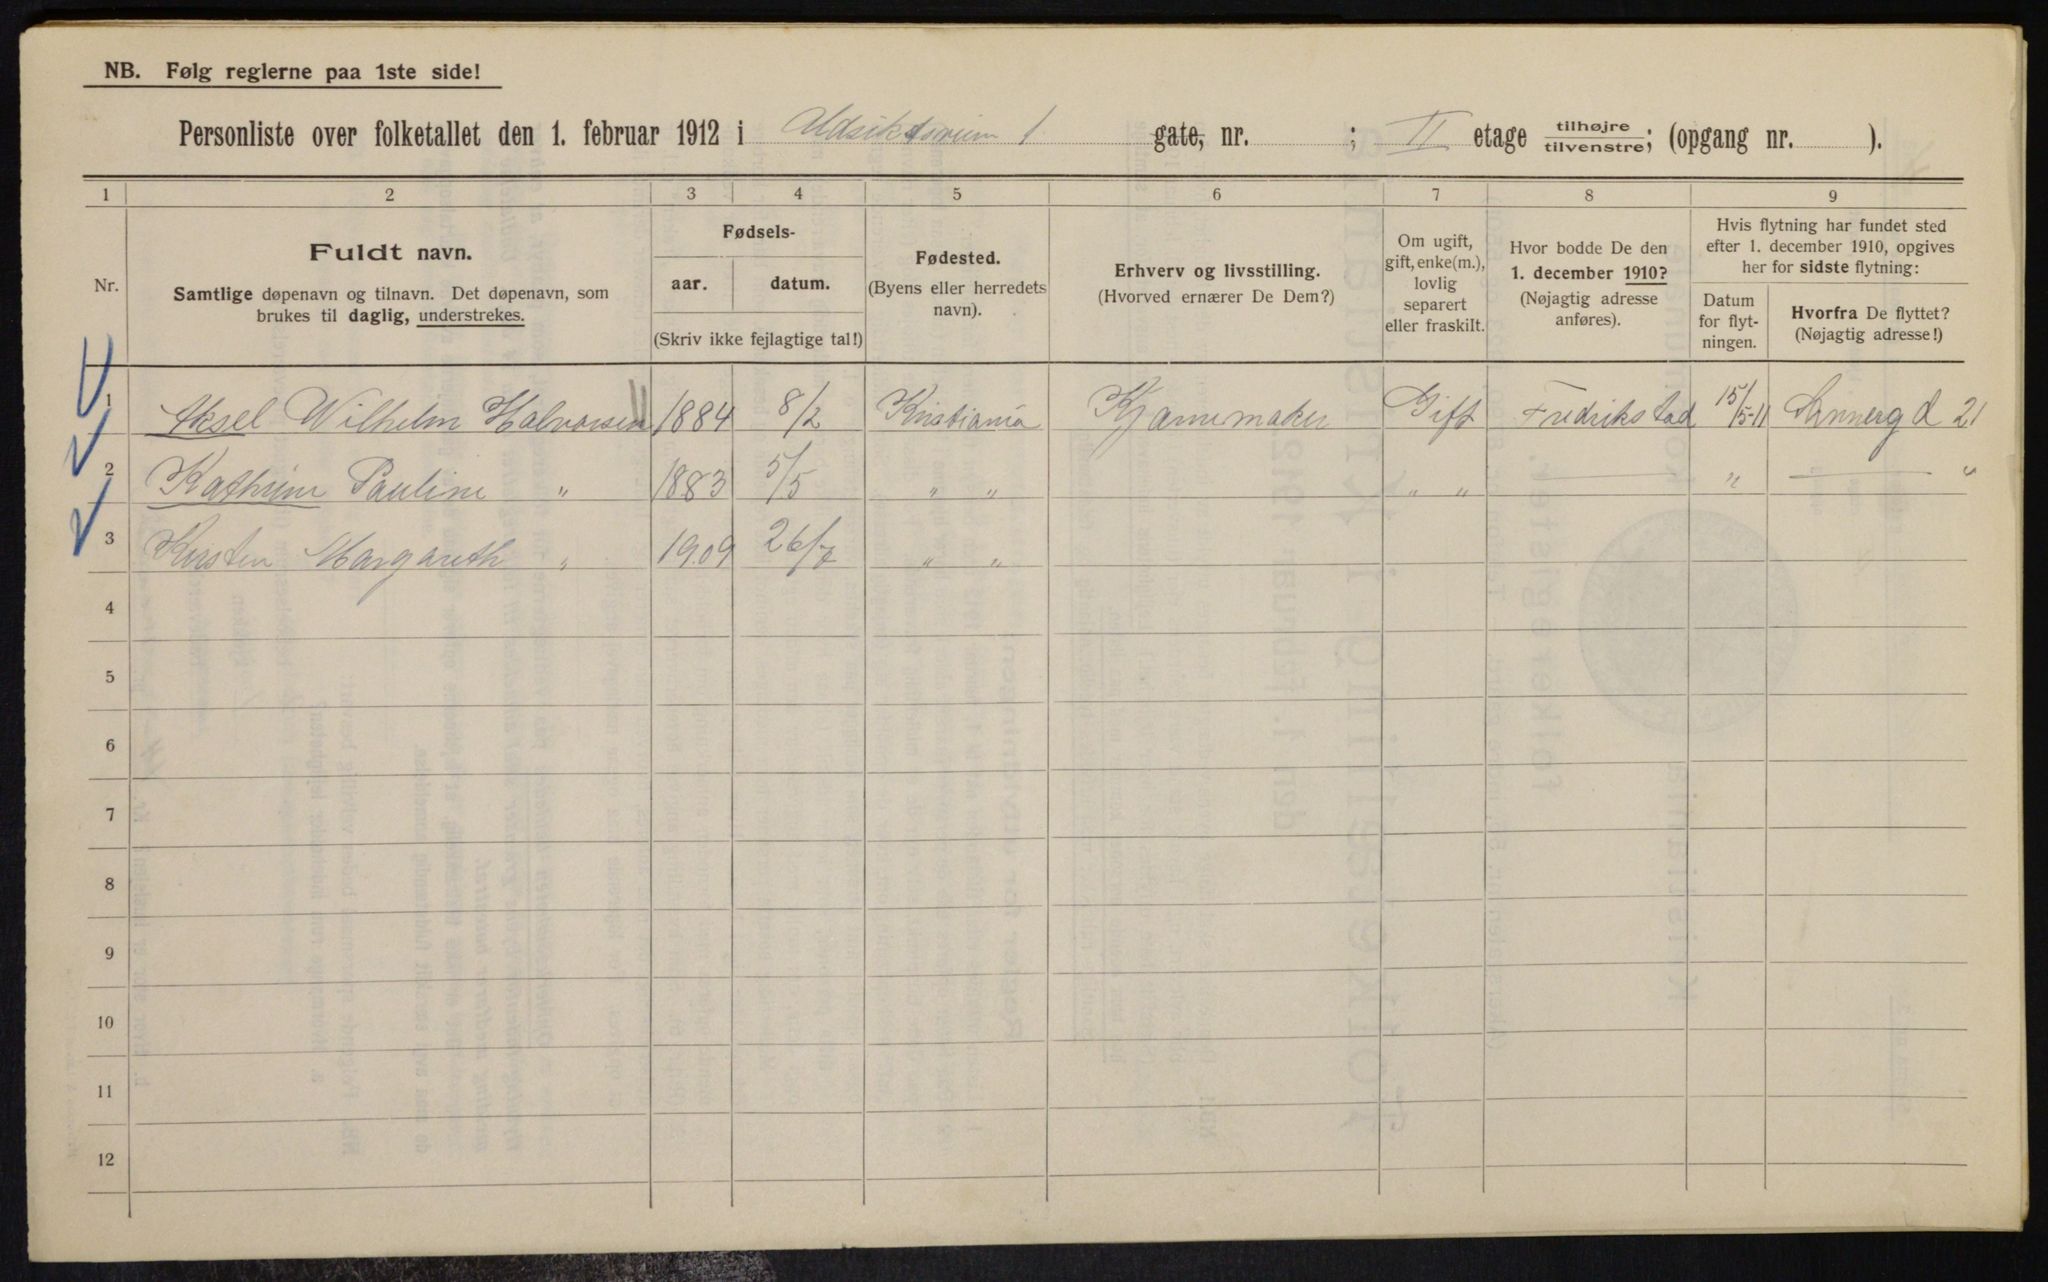 NB. Følg reglerne paa 1ste side!
Personliste over folketallet den 1. februar 1912 i 1 gate, nr. ; II etage tilhøjre tilvenstre; (opgang nr. ).
1 2 3 4 5 6 7 8 9
Nr.
Fuldt navn.
Samtlige døpenavn og tilnavn. Det døpenavn, som
brukes til daglig, understrekes.
Fødsels-
aar. datum.
(Skriv ikke fejlagtige tal!)
Fødested.
(Byens eller herredets
navn).
Erhverv og livsstilling.
(Hvorved ernærer De Dem?)
Om ugift,
gift, enke(m.),
lovlig
separert
eller fraskilt.
Hvor bodde De den
1. december 1910?
(Nøjagtig adresse
anføres).
Hvis flytning har fundet sted
efter 1. december 1910, opgives
her for sidste flytning:
Datum
for flyt-
ningen.
Hvorfra De flyttet?
(Nøjagtig adresse!)
1 Aksel Wilhelm Halvorsen 1884 8/2 Kristiania Gift Fredrikstad 15/5-11 21
2 Kathrine Pauline " 1883 5/5 " " " " — " — "
3 Kirsten Margareth " 1909 26/7 " "
4
5
6
7
8
9
10
11
12